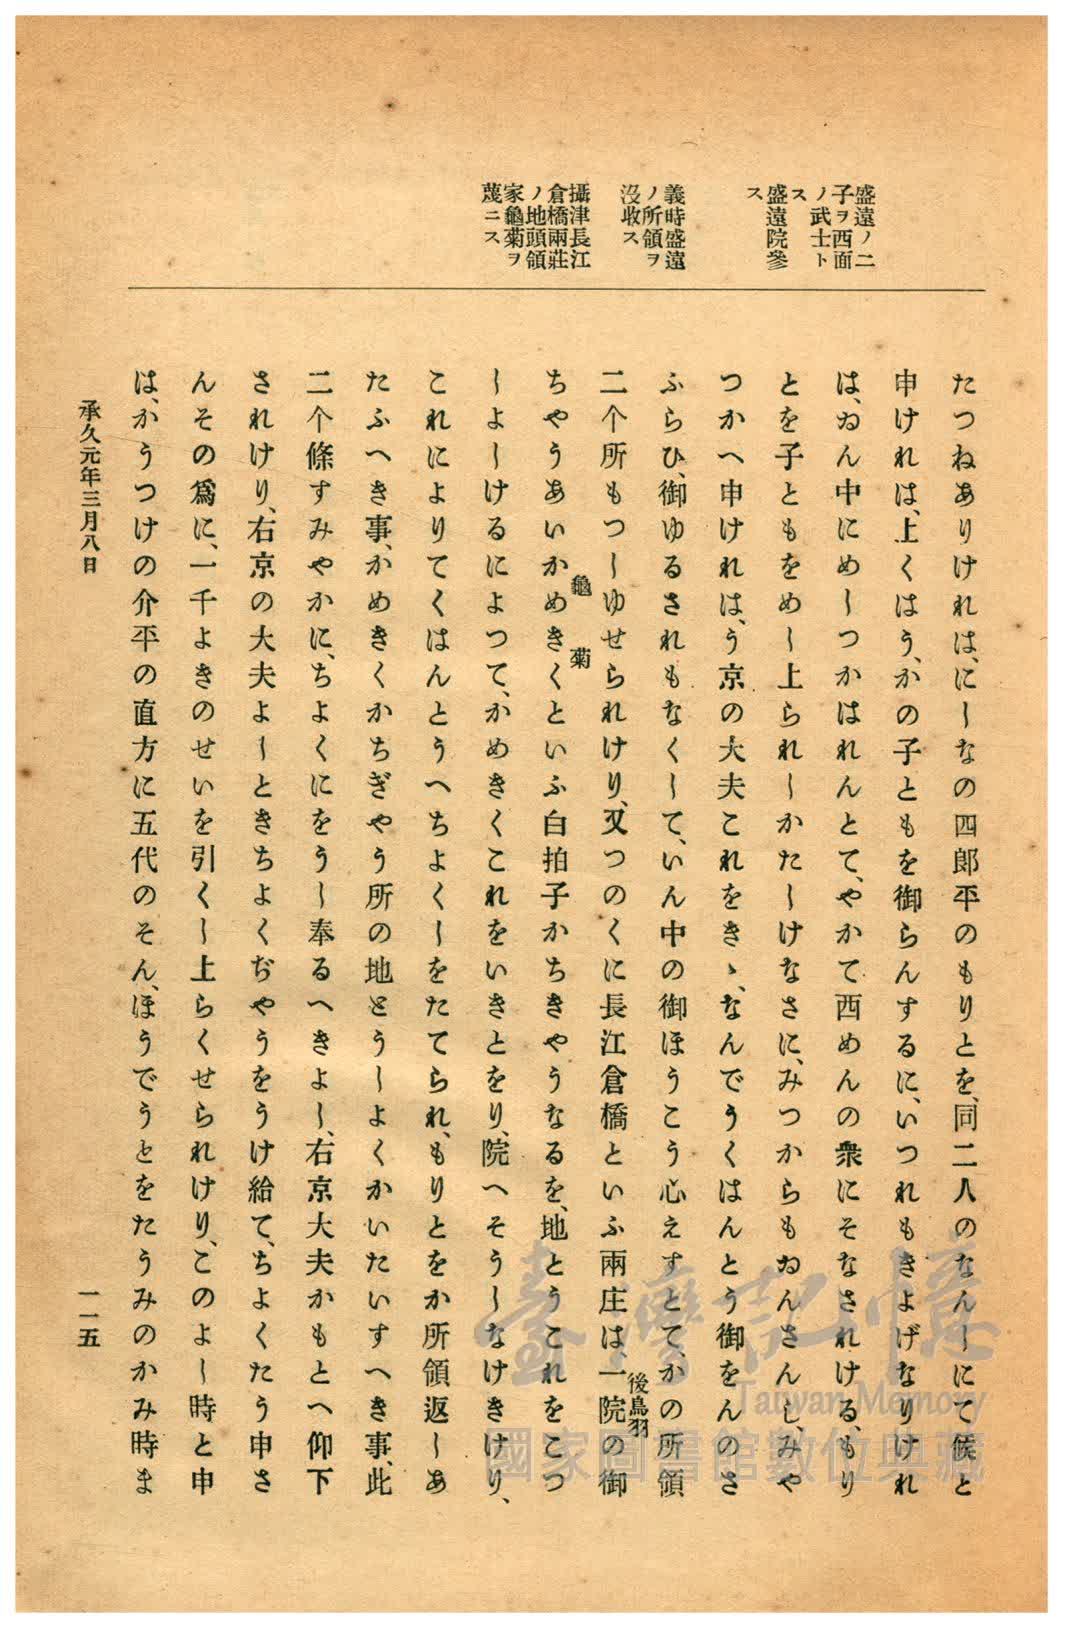 盛遠ノ二
子ヲ西面
ノ武士ト
ス
盛遠院參
ス
義時盛遠
ノ所領ヲ
沒收ス
攝津長江
倉橋兩莊
ノ地頭領
家龜菊ヲ
蔑ニス
たつねありけれは、にしなの四郎平のもりとを、同二人のなんしにて候と
申けれは、上くはう、かの子ともを御らんするに、いつれもきよげなりけれ
は、ゐん中にめしつかはれんとて、やかて西めんの衆にそなされける、もり
とを子ともをめし上られしかたしけなさに、みつからもゐんさんし、みや
つかへ申けれは、う京の大夫これをきゝ、なんでうくはんとう御をんのさ
ふらひ、御ゆるされもなくして、いん中の御ほうこう心えすとて、かの所領
二个所もつしゆせられけり、又つのくに長江倉橋といふ兩庄は、一院の御
後鳥羽
ちやうあいかめきくといふ白拍子かちきやうなるを、地とうこれをこつ
龜菊
しよしけるによつて、かめきくこれをいきとをり、院へそうしなけきけり、
これによりてくはんとうへちよくしをたてられ、もりとをか所領返しあ
たふへき事、かめきくかちぎやう所の地とうしよくかいたいすへき事、此
二个條すみやかに、ちよくにをうし奉るへきよし、右京大夫かもとへ仰下
されけり、右京の大夫よしときちよくぢやうをうけ給て、ちよくたう申さ
んその爲に、一千よきのせいを引くし上らくせられけり、このよし時と申
は、かうつけの介平の直方に五代のそん、ほうでうとをたうみのかみ時ま
承久元年三月八日
一一五
臺灣記憶
Taiwan Memory
國家圖書館數位典藏